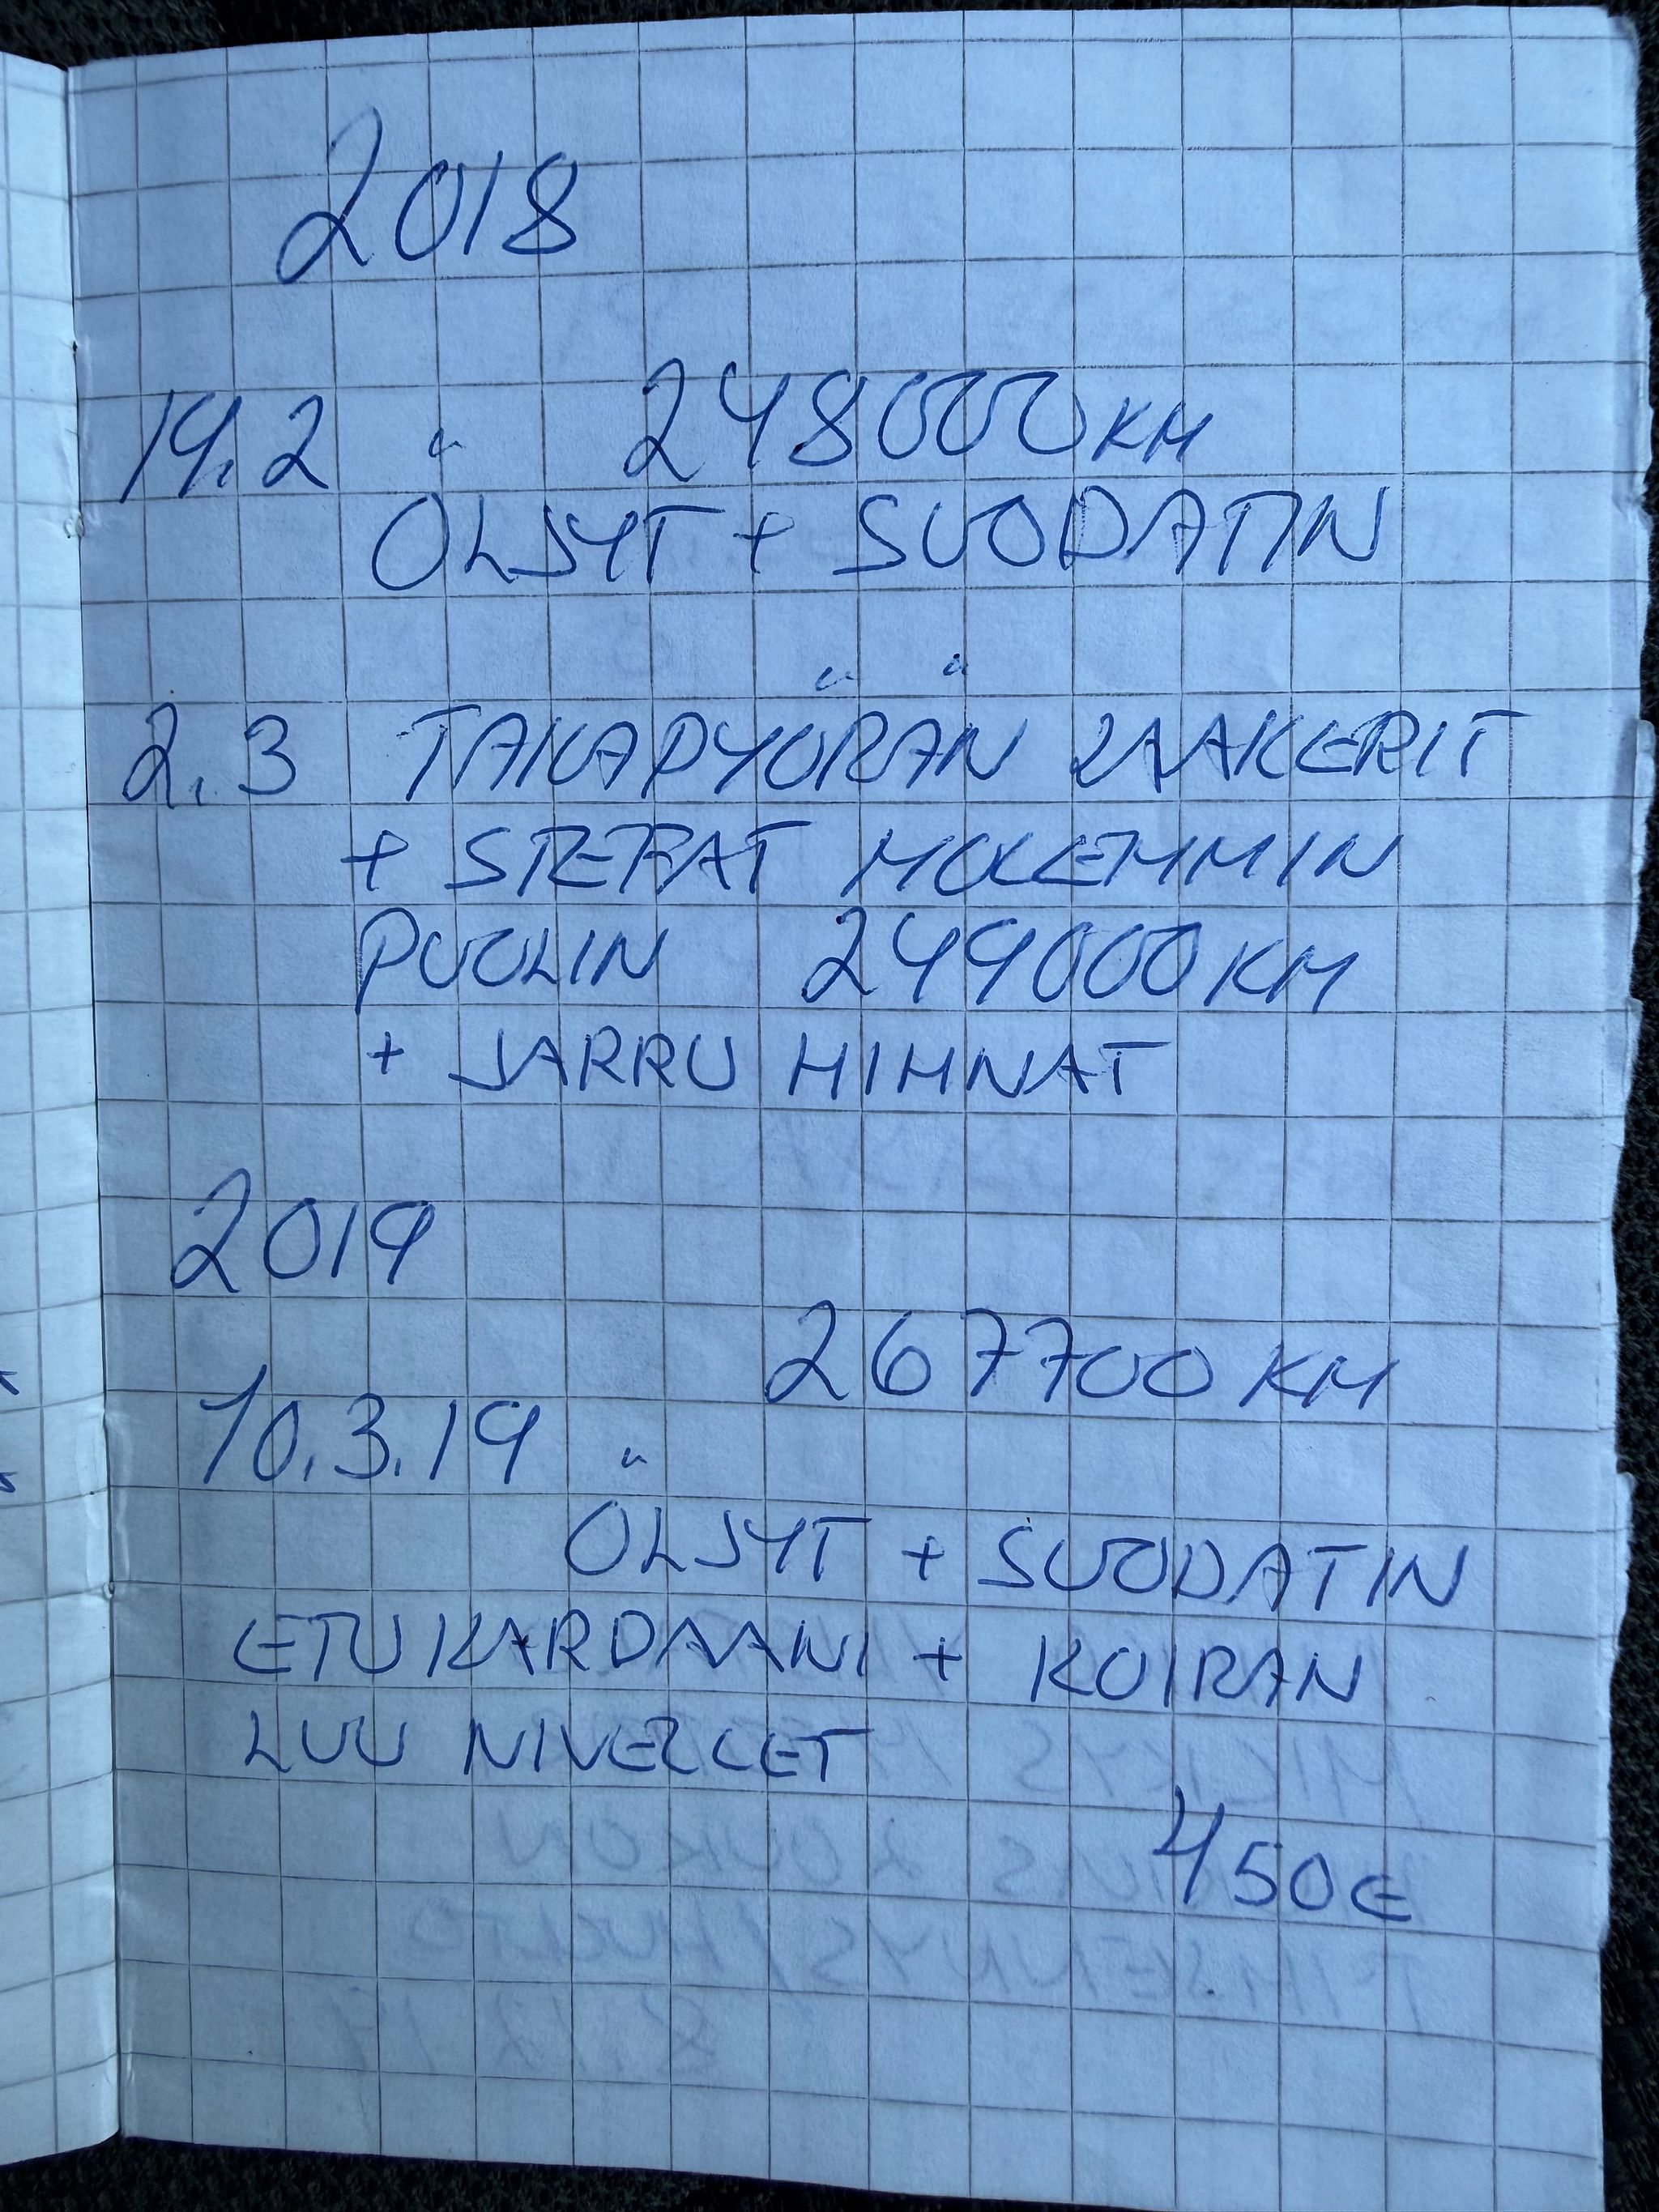 2018
14.2 248000 KM
ÖLJYT + SUODATIN
2.3 TAKAPYÖRÄN LAAKERIT
+ STEFAT MOLEMMIN
PUOLIN 249000 KM
+ JARRU HIHNAT
2019
267700 KM
10.3.19
ÖLJYT + SUODATIN
ETU KARDAANI + KOIRAN
LUU NIVELLET
450€